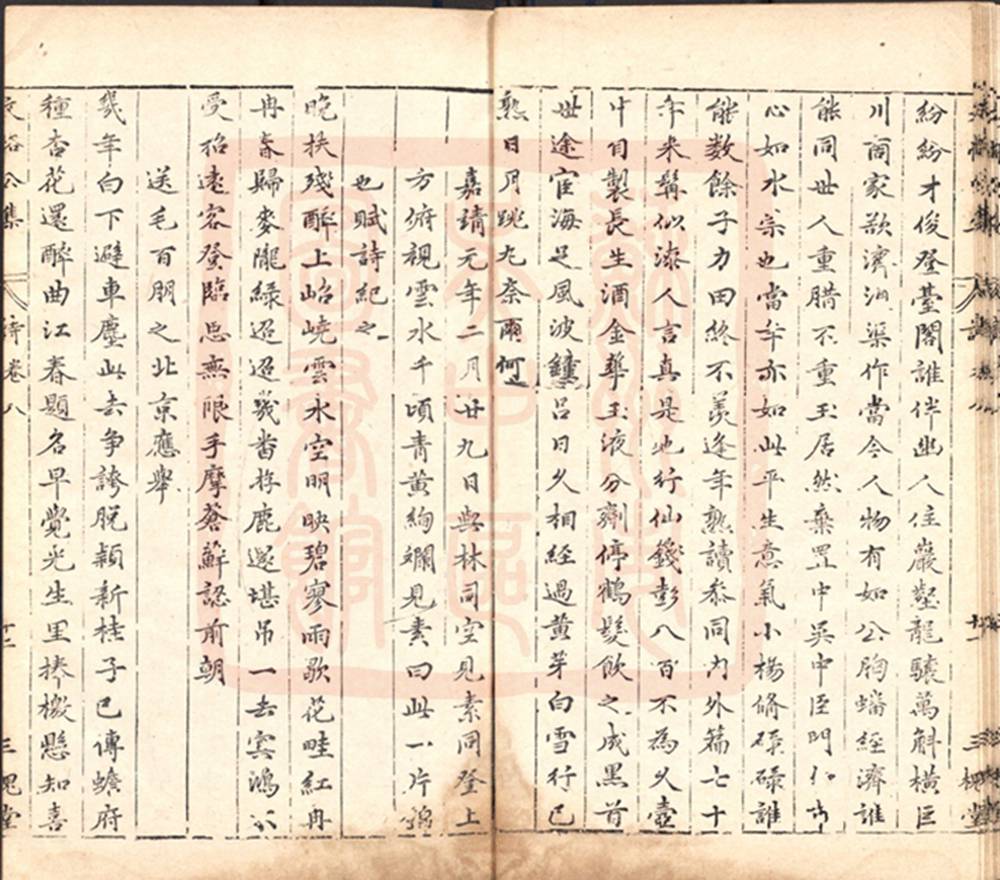 紛紛才俊登臺閣誰伴幽人住巖壑龍驤萬斛橫巨
川商家欲濟汕渠作當今人物有如公胸蟠經濟誰
能同世人重腊不重玉居然棄置中吳中臣門仆市
心如水宗也當年亦如此平生意氣小楊脩碌碌誰
能數餘子力田終不羨逢年熟讀參同內外篇七十
年來鬢似漆人言真是地行仙籛彭八百不為久壺
中自製長生酒金華玉液分劑停鶴髮飲之成黑首
世途宦海足風波鐘呂日久相經過黃芽白雪行已
熟日月跳丸奈爾何
嘉靖元年二月廿九日與林司空見素同登上
方俯視雲水千頃青黃絢斕見素曰此一片錦
也賦詩紀之
晚扶殘醉上岧嶢雲水空明映碧寥雨歇花畦紅冉
冉春歸麥隴綠迢迢幾畨游鹿還堪吊一去冥鴻不
受招遠客登臨思無限手摩蒼蘚認前朝
送毛百朋之北京應舉
幾年白下避車塵此去爭誇脫穎新桂子已傳蟾府
種杏花還醉曲江春題名早覺光生里捧檄懸知喜
文恪公集
詩卷八
十一
三槐堂